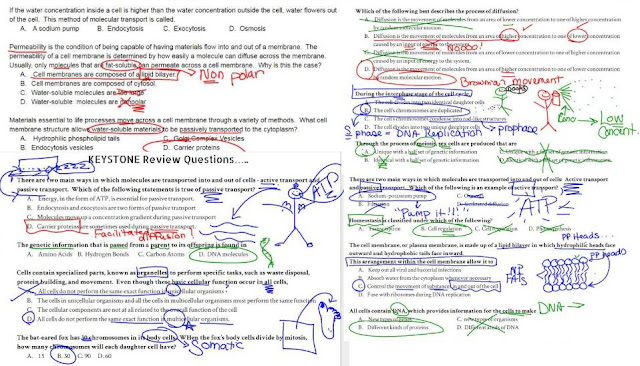 If the water concentration inside a cell is higher than the water concentration outside the cell, water flows out
of the cell. This method of molecular transport is called.
A. A sodium pump B. Endocytosis C. Exocytosis D. Osmosis
Permeability is the condition of being capable of having materials flow into and out of a membrane. The
permeability of a cell membrane is determined by how easily a molecule can diffuse across the membrane.
Usually, only molecules that are fat-soluble can permeate across a cell membrane. Why is this the case?
A. Cell membranes are composed of a lipid bilayer.
Non polar
B. Cell membranes are composed of cytosol.
C. Water-soluble molecules are
D. Water-soluble molecules are nonpolar
Materials essential to life processes move across a cell membrane through a variety of methods. What cell
membrane structure allows water-soluble materials to be passively transported to the cytoplasm?
A. Hydrophilic phospholipid tails C. Golgi Complex Vesicles
B. Endocytosis vesicles D. Carrier proteins
KEYSTONE Review Questions....
There are two main ways in which molecules are transported into and out of cells - active transport and
passive transport. Which of the following statements is true of passive transport?
A. Energy, in the form of ATP, is essential for passive transport.
B. Endocytosis and exocytosis are two forms of passive transport.
C. Molecules move up a concentration gradient during passive transport
D. Carrier proteins are sometimes used during passive transport.
Facilitated diffusion!
ATP
The genetic information that is passed from a parent to its offspring is found in
A. Amino Acids B. Hydrogen Bonds C. Carbon Atoms D. DNA molecules
Cells contain specialized parts, known as organelles to perform specific tasks, such as waste disposal,
protein building, and movement. Even though these basic cellular function occur in all cells,
A. All cells do not perform the same exact function in unicellular organisms
B. The cells in unicellular organisms and all the cells in multicellular organisms must perform the same function
C. The cellular components are not all related to the overall function of the cell
D. All cells do not perform the same exact function in multicellular organisms.
The bat-eared fox has chromosomes in its body cells. When the fox's body cells divide by mitosis,
how many chromosomes will each daughter cell have?
Somatic
A. 15 B. 30 C. 90 D. 60
Which of the following best describes the process of diffusion?
A. Diffusion is the movement of molecules from an area of lower concentration to one of higher concentration
by random molecular motion.
B. Diffusion is the movement of molecules from an area of higher concentration to one of lower concentration
caused by an input of energy to the system.
Nooo!
C. Diffusion is the movement of molecules from an area of lower concentration to one of higher concentration
caused by an input of energy to the system.
D. Diffusion is the movement of molecules from an area of higher concentration to one of lower concentration
by random molecular motion.
Brownian movement
During the interphase stage of the cell cycle,
A. The cell divides into two identical daughter cells
B. The cell's chromosomes are duplicated
C. The cell's chromosomes condense into rod-like structures
D. The cell divides into two unique daughter cells
S phase = DNA Replication
prophase
Low
Concent.
Through the process of meiosis, sex cells are produced that are
A. Unique with a half set of genetic information
There are two main ways in which molecules are transported into and out of cells. Active transport
and passive transport. Which of the following is an example of active transport?
A. Sodium-potassium pump
"Pump it!!!"
ATP
Homeostasis is classified under which of the following?
B. Cell regulation
The cell membrane, or plasma membrane, is made up of a lipid bilayer in which hydrophilic heads face
outward and hydrophobic tails face inward.
PP Heads...
This arrangement within the cell membrane allow it to
A. Keep out all viral and bacterial infections
B. Absorb waters from the cytoplasm whenever necessary
C. Control the movement of substances in and out of the cell
D. Fuse with ribosomes during DNA replication
All cells contain DNA, which provides information for the cells to make
DNA
A. New types of C. New types of organisms
B. Different kinds of proteins D. Different kinds of DNA